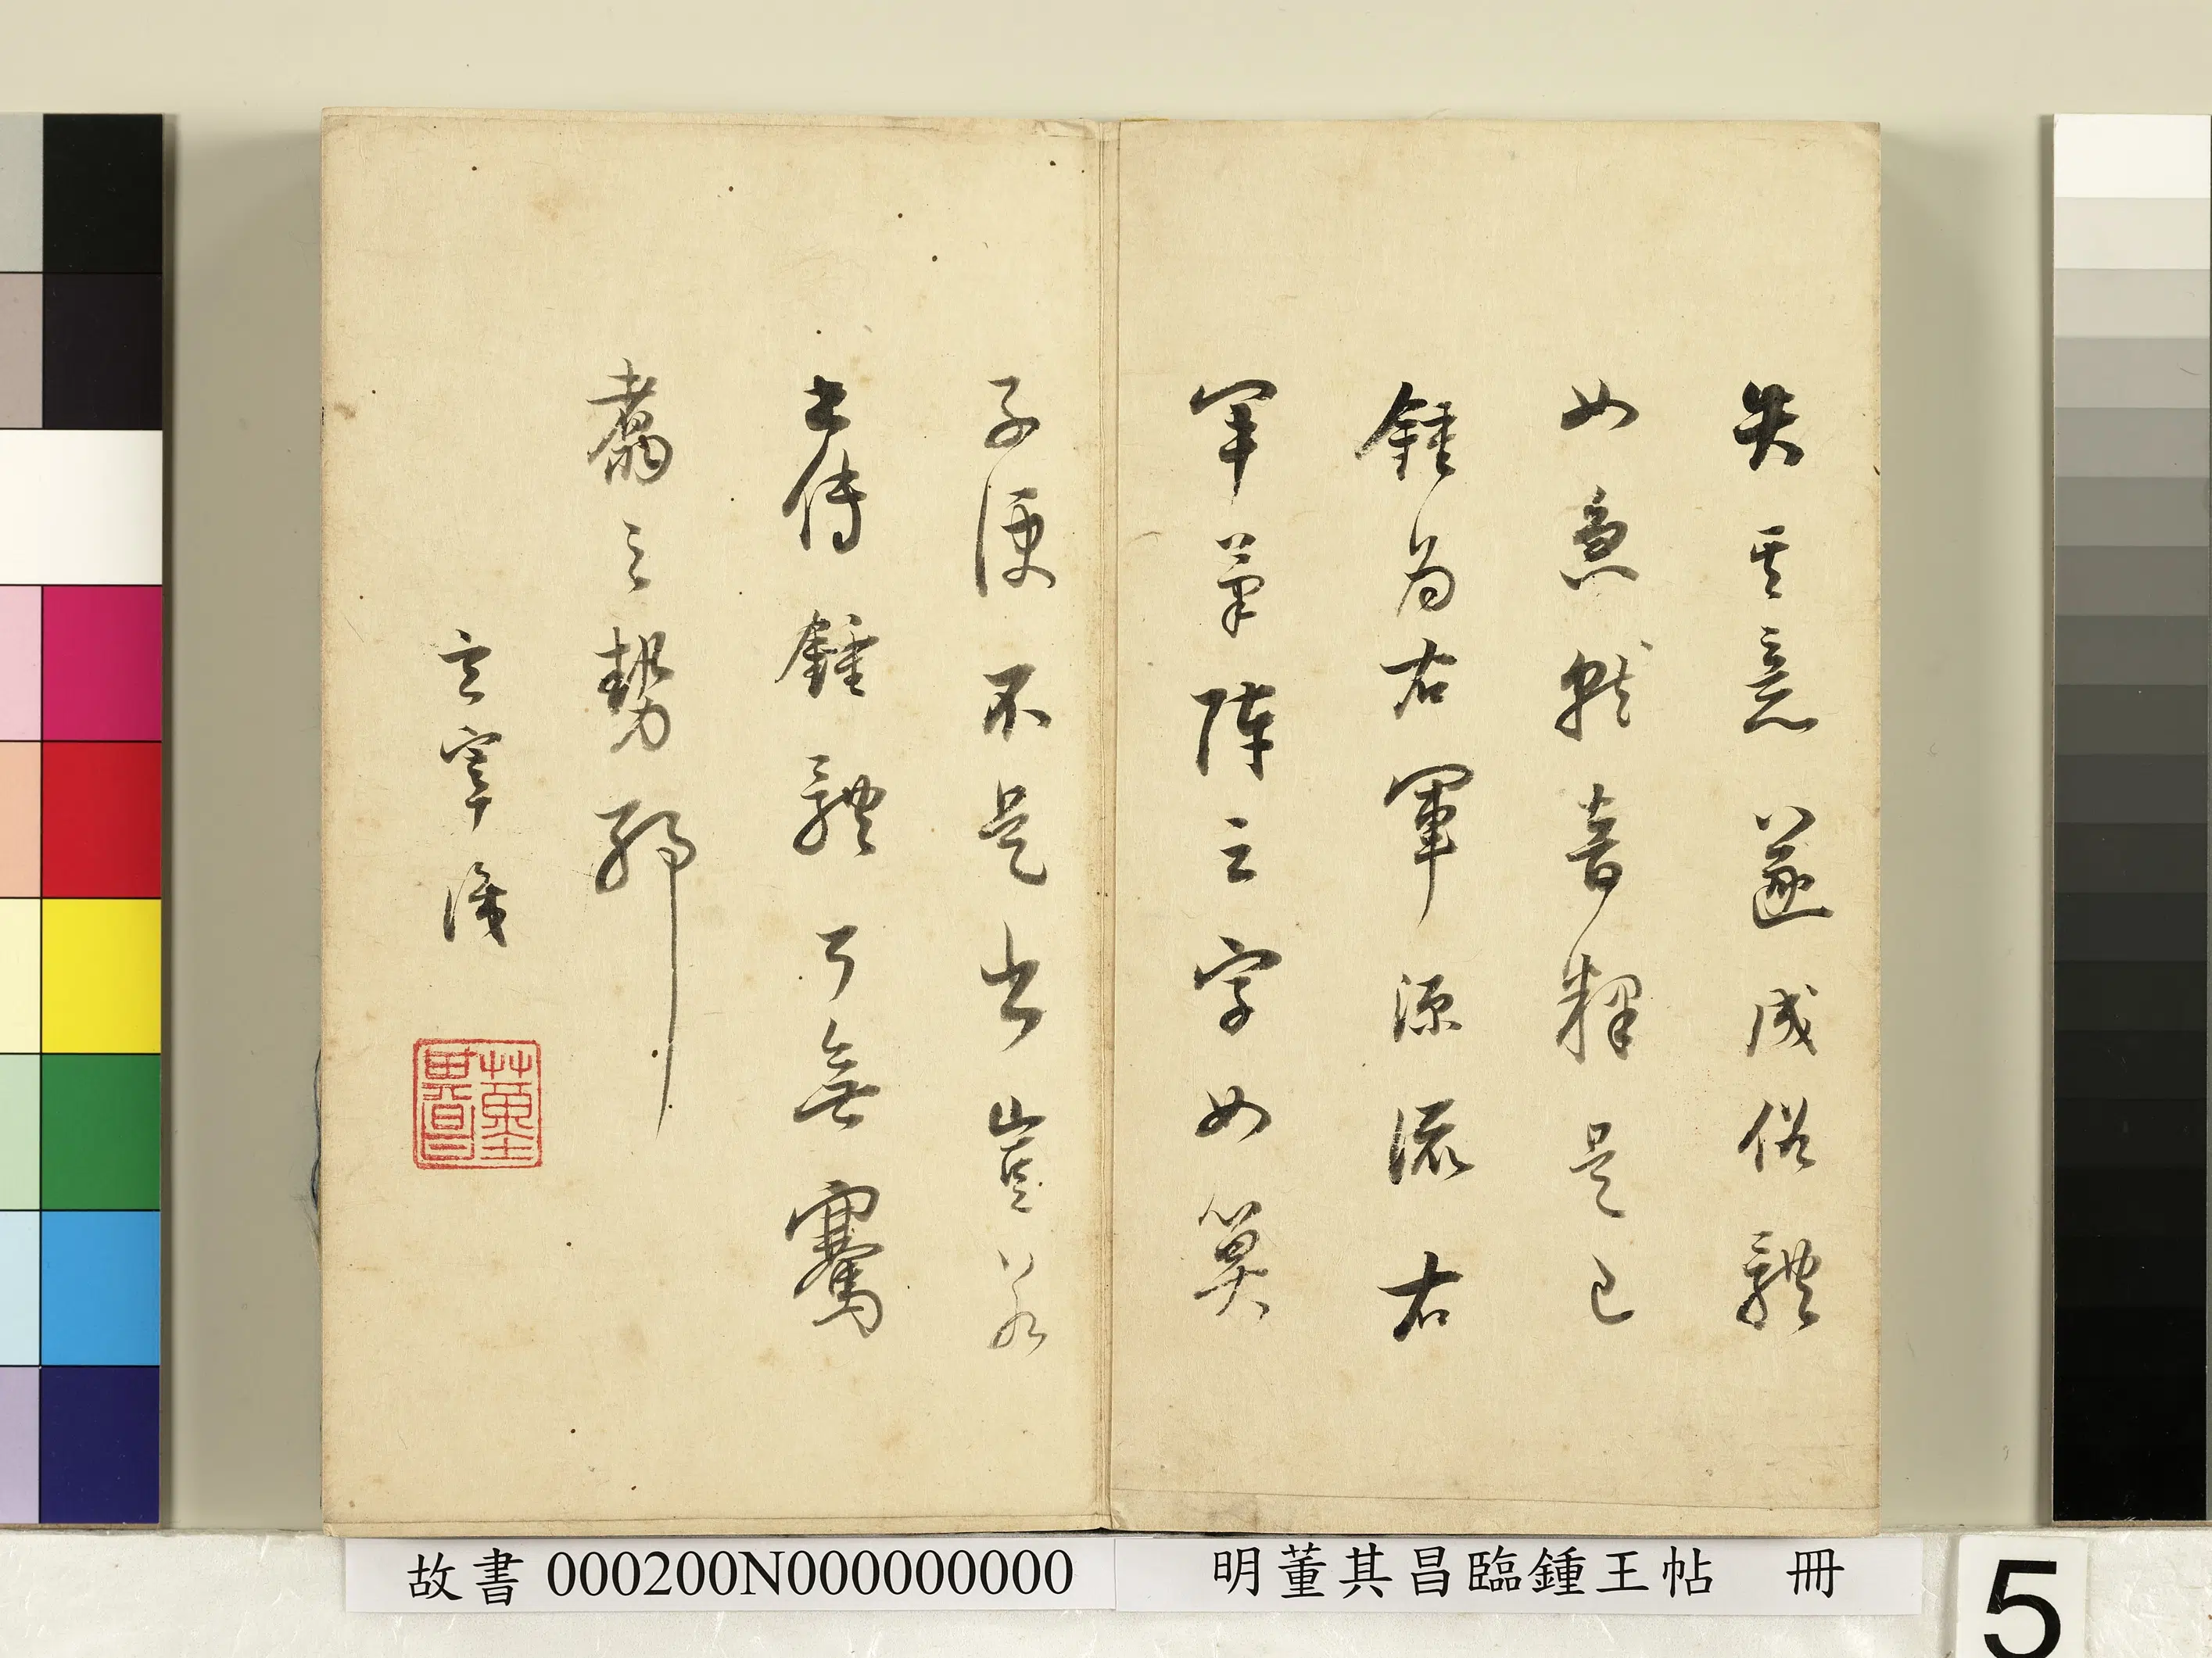 失其意遂成俗體
如急就音釋是已
鍾為右軍源流右
軍筆陣云字如算
子便不是書豈若
世傳鍾體了無騫
翥之勢耶
玄宰識
董其昌
故書000200N000000000
明董其昌臨鍾王帖　冊
5